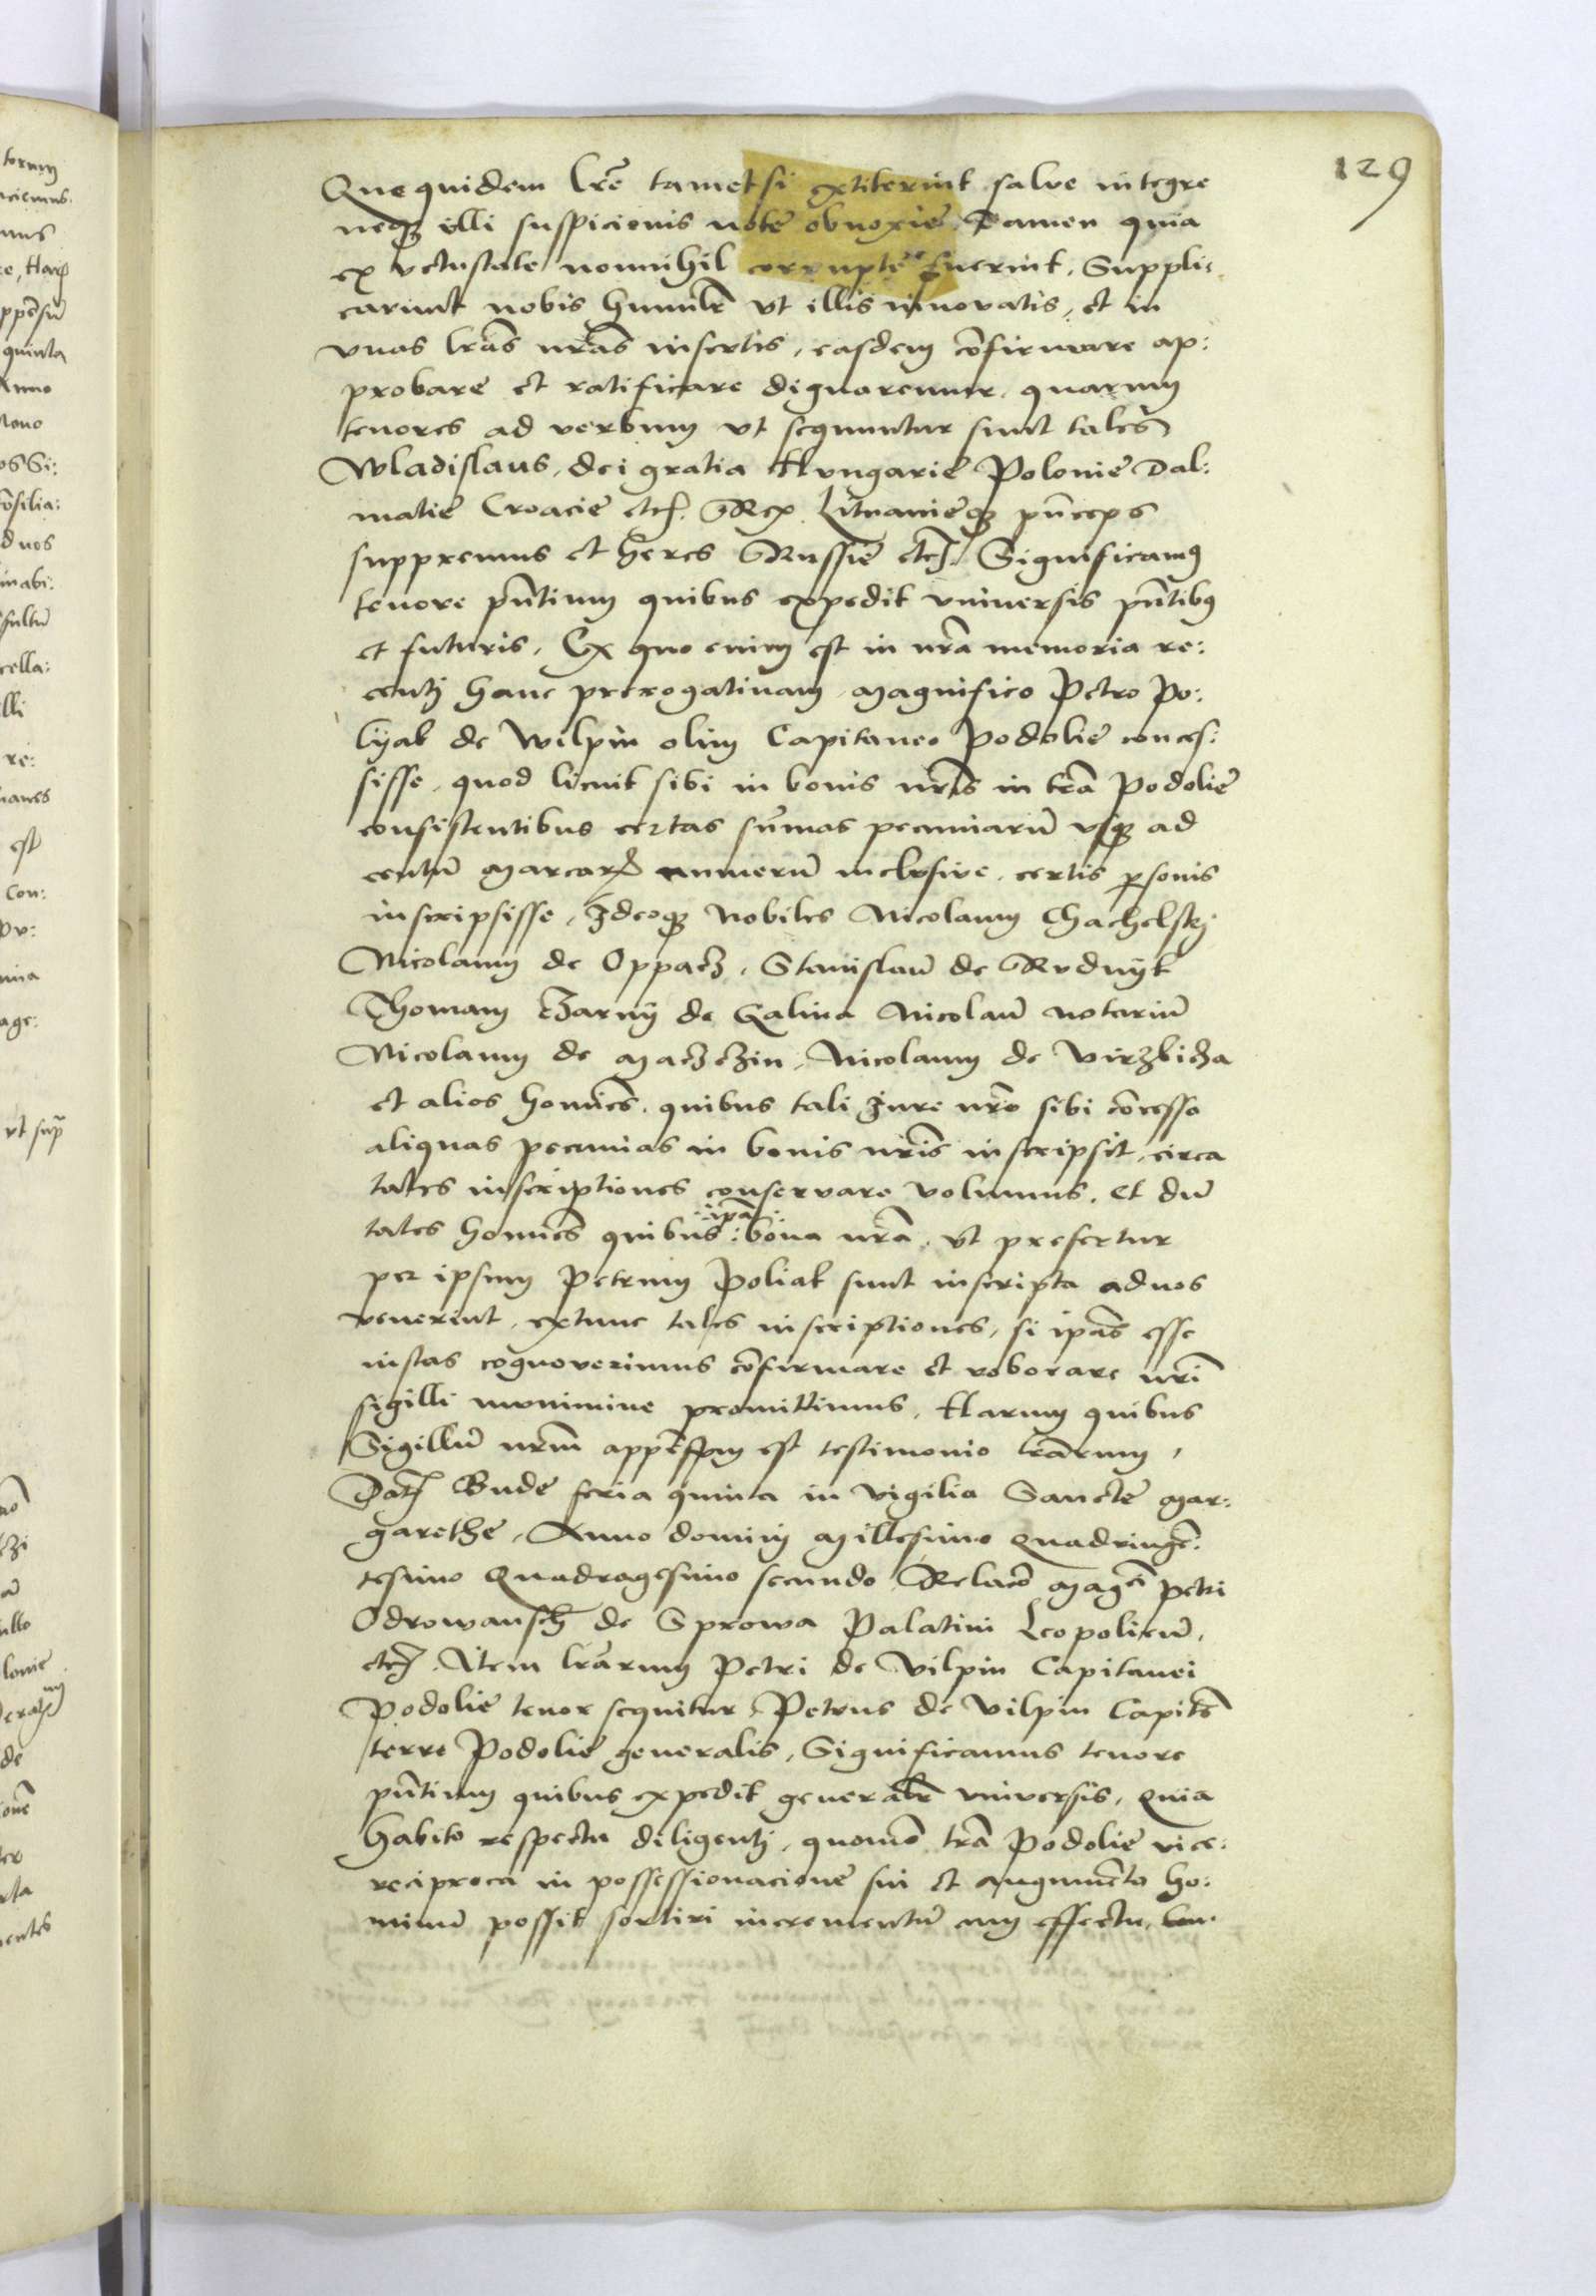 129
Que quidem lrē tametsi extiterint salve integre
neqȝ ulli suspicionis note obnoxie, Tamen quia
ex vetustate nonnihil corrupte fuerint, Suppli:
carunt nobis humilr̄ vt illis innovatis, et in
vnas lrās nrās insertis, easdem cōfirmare ap:
probare et ratificare dignaremur, quarum
tenores ad verbum vt sequuntur sunt tales
Wladislaus, dei gratia Hungarie Polonie Dal:
matie Croacie etc. Rex Lituanieqȝ pn̄ceps
suppremus et heres Russie etc. Significamꝰ
tenore pn̄tium quibus expedit vniversis pn̄tibꝰ
et futuris, Ex quo enim est in nrā memoria re:
centj hanc prerogativam magnifico Petro Po:
lyak de Wilpin olim Capitaneo Podolie conces:
sisse, quod licuit sibi in bonis nrīs in trā Podolie
consistentibus certas sūmas pecuniarū vsqȝ ad
centū marcarꝝ numerū inclusive, certis ꝑsonis
inscripsisse, Ideoqȝ Nobiles Nicolaum Chachelskj
Nicolaum de Oppacz, Stanislaū de Rudnyk
Thomam Czarny de Galina Nicolaū notariū
Nicolaum de Maczczin, Nicolaum de Virzbicza
et alios homīes, quibus tali Iure nrō sibi cōcesso
aliquas pecunias in bonis nrīs inscripsit, circa
tales inscriptiones conservare volumus, Et dū
tales homīes quibus :ipā: bona nrā, vt prefertur
per ipsum Petrum Poliak sunt inscripta ad nos
venerint, extunc tales inscriptiones, si ipās esse
iustas cognoverimus cōfirmare et roborare nrī
sigilli munimine promittimus, Harum quibus
Sigillū nrm̄ appēsum est testimonio lrārum,
Dat Bude feria quinta in vigilia Sancte Mar:
garethe, Anno dominj Millesimo Quadringē:
tesimo Quadragesimo secundo Relacō Magci Petri
Odrowansch de Sprowa Palatini Leopolieñ,
etc. Item lrārum Petri de Vilpin Capitanei
Podolie tenor sequitur, Petrus de Vilpin Capitēs
terre Podolie generalis, Significamus tenore
pn̄tium quibus expedit generalr̄ vniversis, Quia
habito respectu diligentj, quomō trā Podolie vice:
reciproca in possessionacione sui et augmēto ho:
minū possit sortiri incrementū cum effectu,